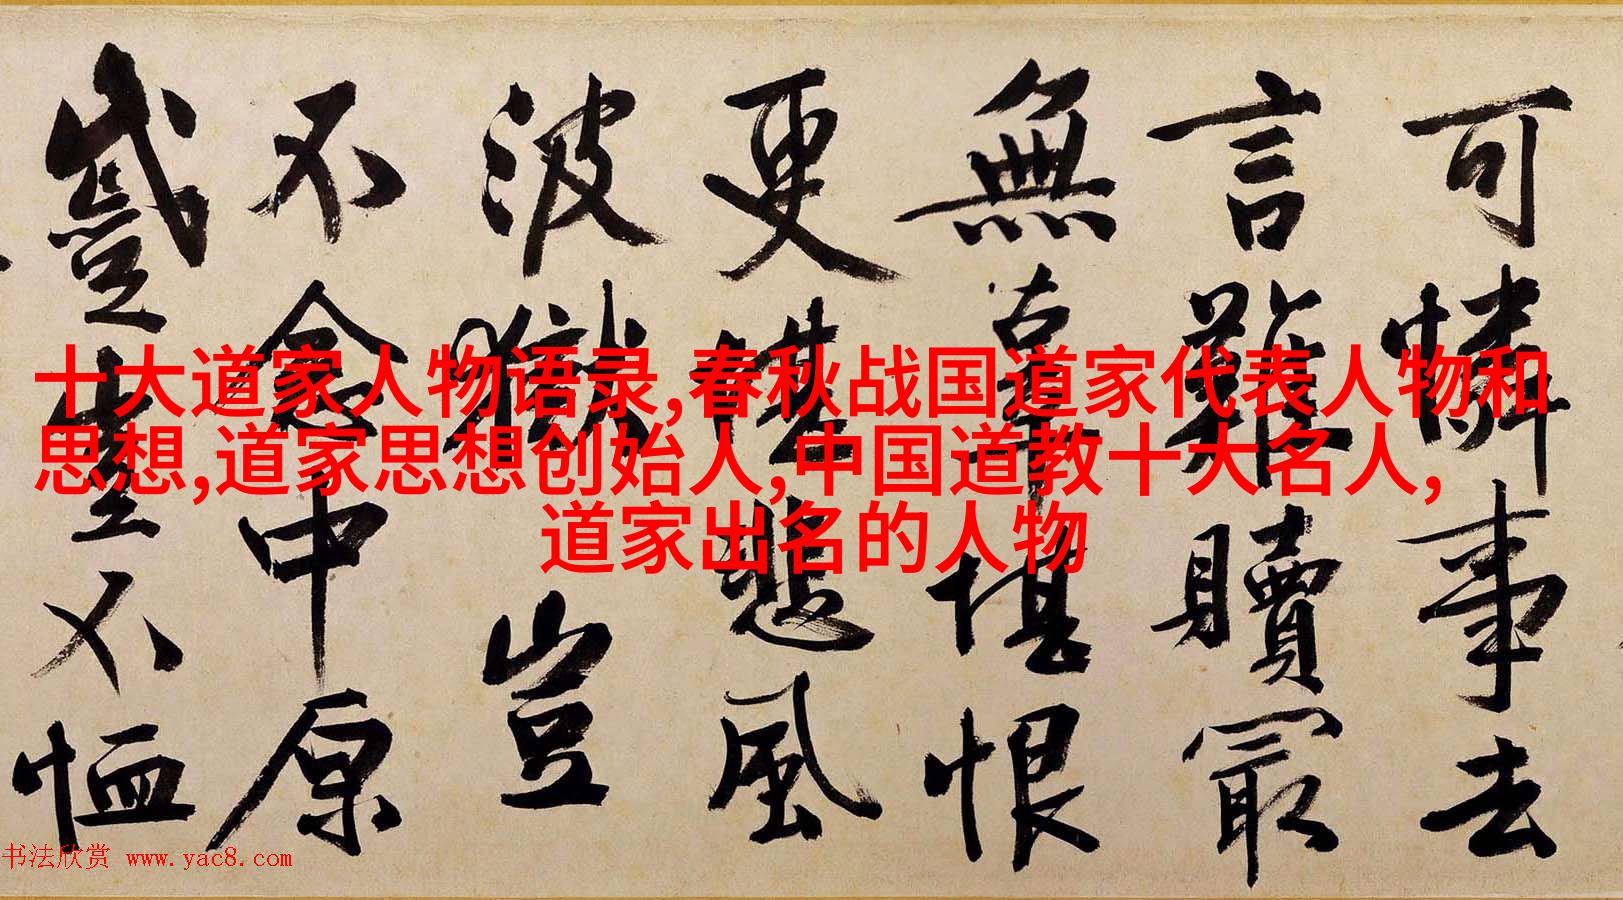 可憐事去
言難贖最
無辜堪恨
更堪悲風
波獄豈
不念中原
不恤
十大道家人物语录,春秋战国道家代表人物和
思想,道家思想创始人,中国道教十大名人,
道家出名的人物
书法欣赏 www.yac8.com